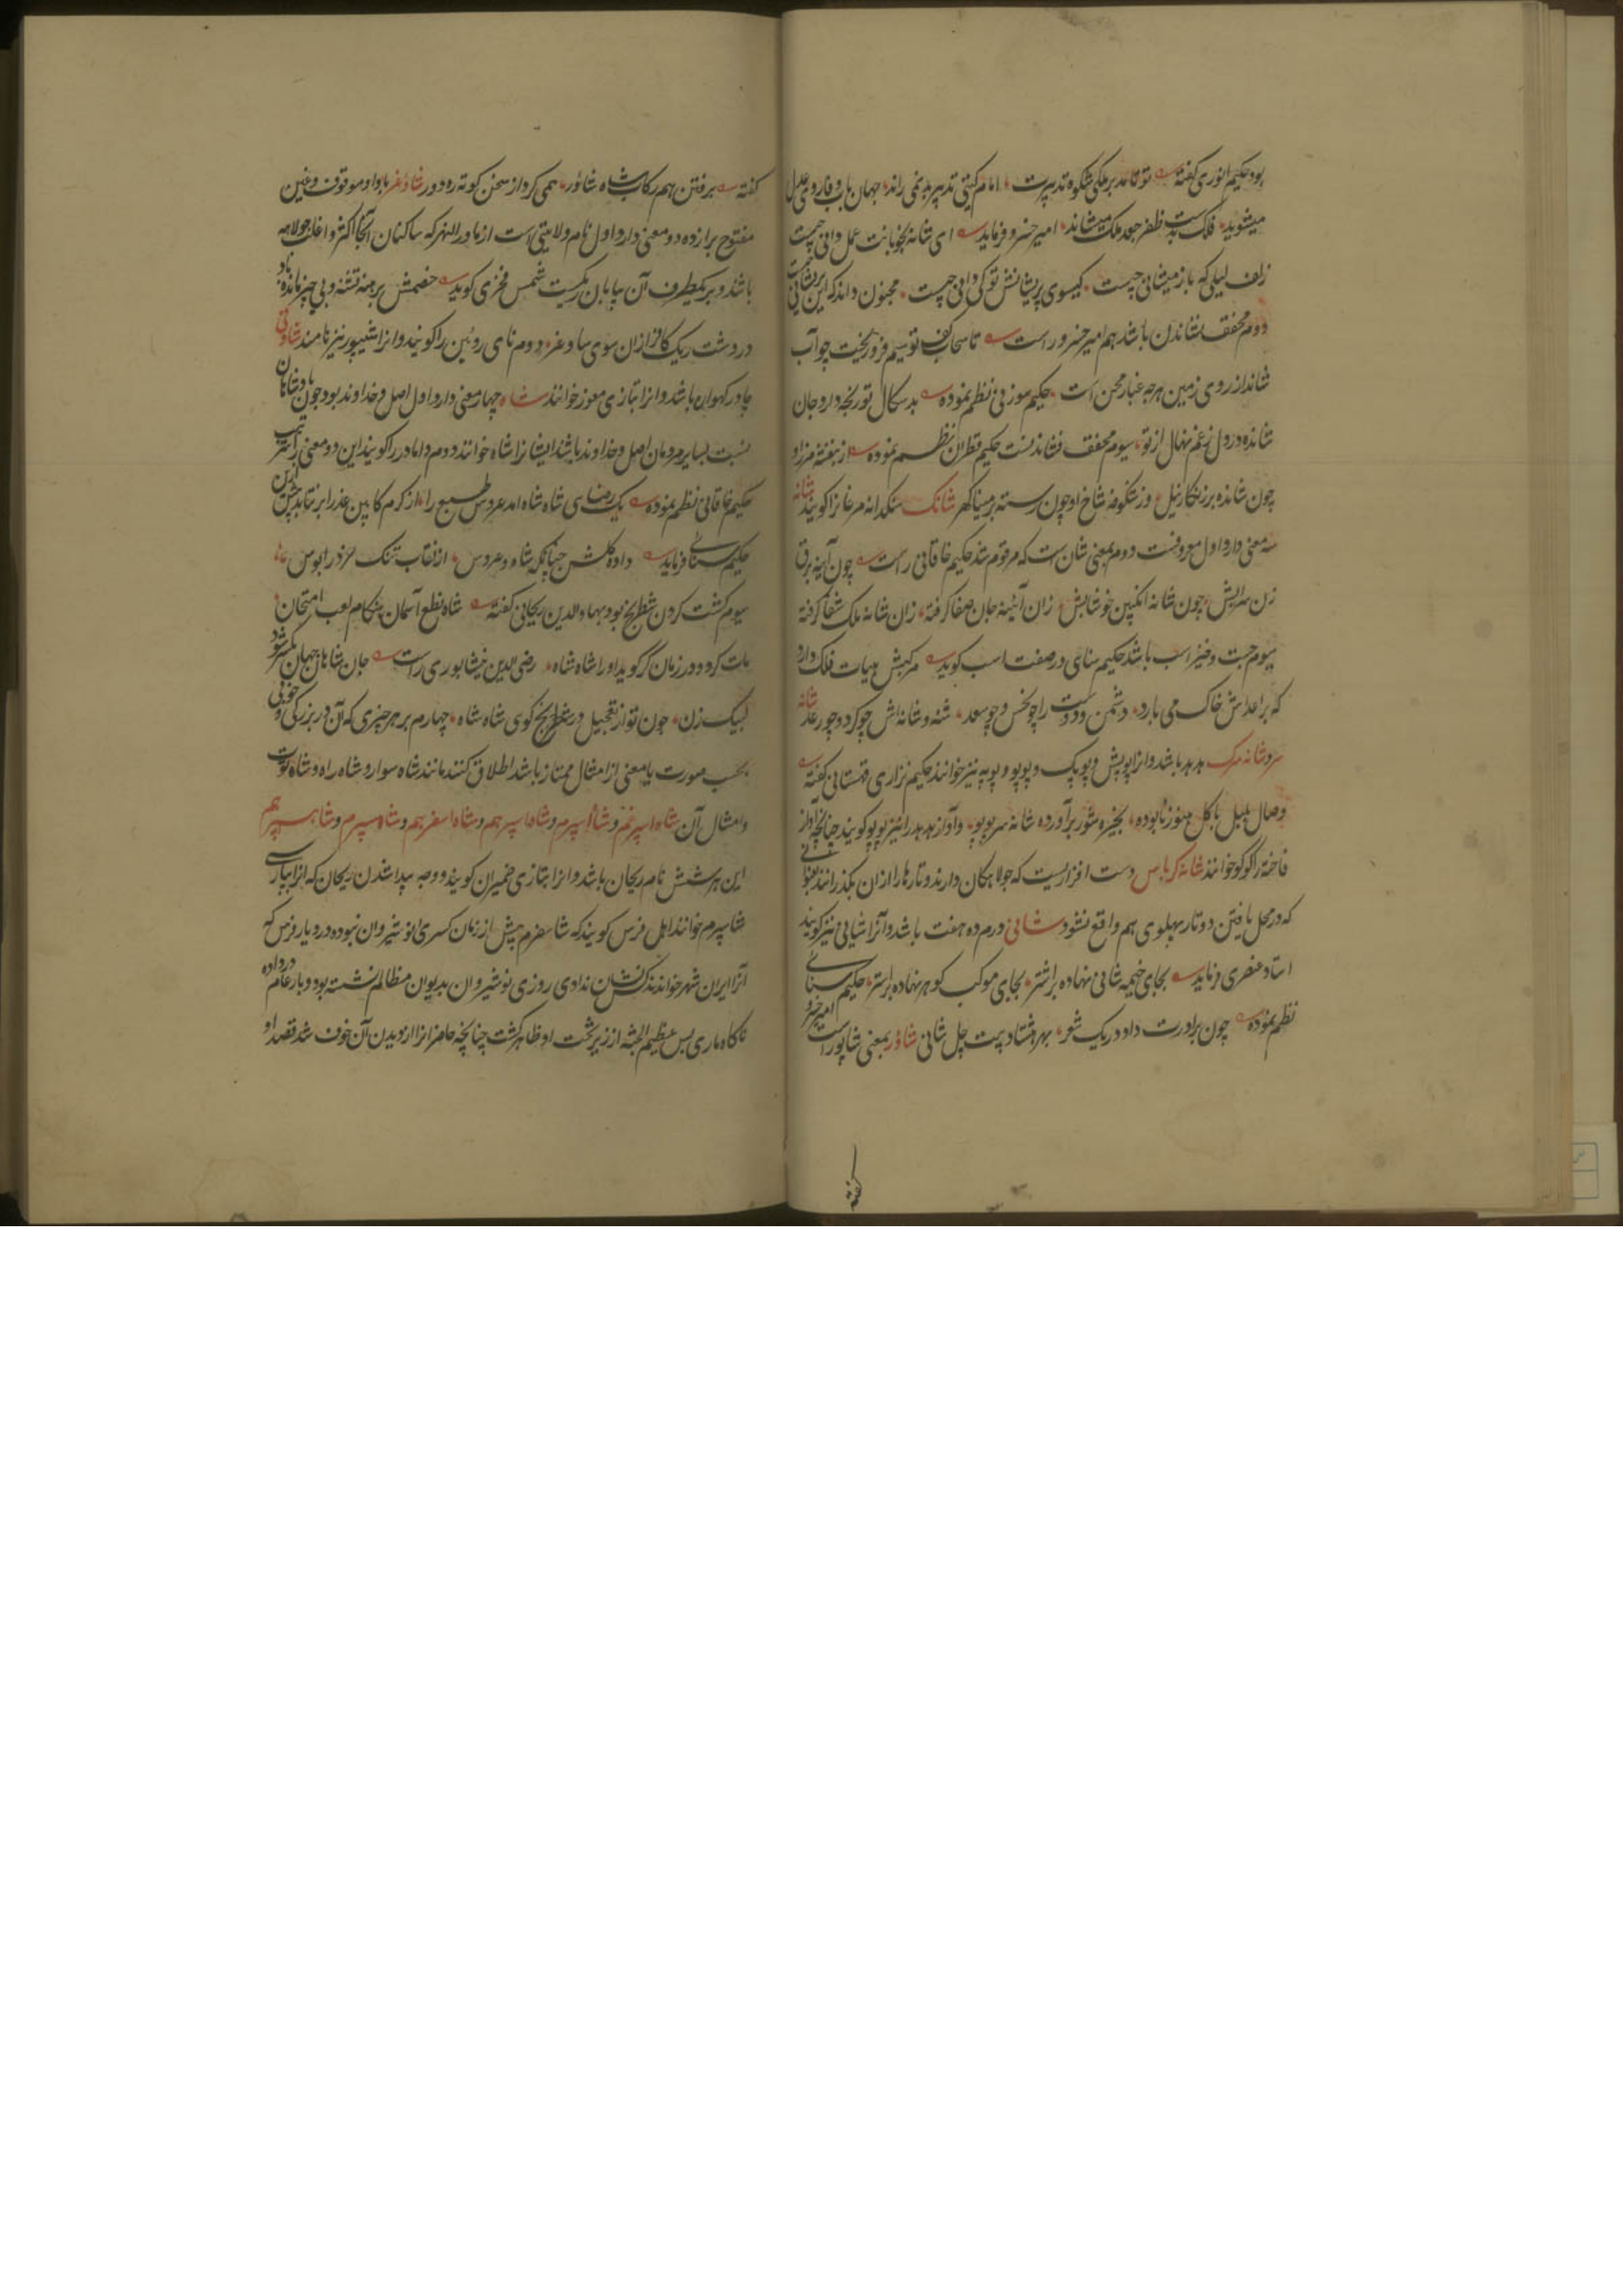 بود حکیم انوری گفته تو قاصد بر ملکی شکوه تدبیرت امام گیتی تدبیر بدنمی راند جهان باب وفا روی عدل
میشوید فلک بدست ظفر جعد ملک میشاند امیر خسرو فرماید ای شانه بگو بابت عمل دانی چیست
زلف لیلی که باز میشانی چیست گیسوی پریشانش تو کی دانی چیست مجنون داند که این پریشانی چیست
دوم مخفف نشاندن باشد هم امیر خسرو راست تا سحاب کف تو سیم فرو ریخت چو آب
شاند از روی زمین هرچه غبار محن است حکیم سوزنی نظم نموده بدسگال تو رنجه دارد جان
شانده در دل ز غم نهال از تو سیوم مخفف فشاندنست حکیم قطران نظم نموده از بنفشه مرز او
چون شانده بر زنگار نیل وز شکوفه شاخ او چون رسته بر مینا گهر شانک سنگدانه مرغ را گویند شانه
سه معنی دارد اول معروفست دوم بمعنی شان است که مرقوم شد حکیم خاقانی راست چون آینه برق
زن سرایش چون شانه انگبین خوشابش زان آئینه جان صفا گرفته زان شانه ملک شفا گرفته
سیوم جست و خیز اسب باشد حکیم سنای در صفت اسب گوید مرکبش هیات فلک دارد
که بر اعداش خاک می بارد دشمن و دوست را چو نحس و چو سعد شنه و شانه اش چو کرد و چو رعد شانه
سر و شانه سرک هدهد باشد و انرا پوپش و پوپک و پوپو و پوپه نیز خوانند حکیم نزاری قهستانی گفته
وصال بلبل با گل هنوز نابوده بخیره شور برآورده شانه سر پوپو و آواز هدهد را نیز پوپو گویند چنانچه آواز
فاخته را کوکو خوانند شانه کرباس دست افزاریست که جولاهکان دارند و تارها را از آن بگذرانند بنوعی
که در محل بافتن دو تار پهلوی هم واقع نشود شانی درم ده هفت باشد و آنرا شیانی نیز گویند
استاد عنصری فرماید بجای خیمه شانی نهاده بر اشتر بجای موکب گوهر نهاده بر استر حکیم سنائی
نظم نموده چون برادرت داد در یک شعر بهر هشتاد بیت چل شانی شاؤر بمعنی شاپور است امیر خسرو
گفته
گفته برفتن هم رکاب شاه شاؤر همی کرد از سخن کوته ره دور شاوغر با واو موقوف و غین
مفتوح برا زده دو معنی دارد اول نام ولایتی است از ماوراالنهر که ساکنان آنجا اکثر و اغلب جولاهه
باشد و بر یکطرف آن بیابان ریگست شمس فخری گوید خصمش برهنه تشنه و بی چیز مانده باد
در دشت ریک کافر از ان سوی ساوغر دوم نای روئین را گویند و انرا شیپور نیز نامند شاونی
چادر گهواره باشد و انرا بتازی معوز خوانند شاه چهار معنی دارد اول اصل و خداوند بود چون پادشاهان
نسبت بسایر مردمان اصل و خداوند باشند ایشانرا شاه خوانند دوم داماد را گویند این دو معنی بترتیب
حکیم خاقانی نظم نموده یک رضای شاه شاه امد عروس طبع را از کرم کابین عذرا بر نتابد بیش ازین
حکیم سنائی فرماید داده گلشن چنانکه شاه و عروس از نقاب تنک سزد را بوس
سیوم کشت کردن شطرنج بود بهاءالدین ریحانی گفته شاه نطع آسمان هنگام لعب امتحان
مات گردد ور زمان گر گوید او را شاه شاه رضی الدین نیشابوری راست جان شاهان جهان یکسر شود
لبیک زن چون تو از تعجیل در شطرنج گوی شاه شاه چهارم بر هر چیزی که آن در بزرگی و خوبی
بحسب صورت یا معنی از امثال ممتاز باشد اطلاق کنند مانند شاه سوار و شاه راه و شاه توت
و امثال آن شاه اسپرغم و شاه اسپرم و شاه اسپرهم و شاه اسفرهم و شاه سپرم و شاه سپرهم
این هر شش نام ریحان باشد و انرا بتازی ضمیران گویند و وجه پیدا شدن ریحان که انرا بپارسی
شاسپرم خوانند اهل فرس گویند که شاسفرم پیش از زمان کسری انوشیروان نبوده در دیار فرس که
آنرا ایران شهر خوانند کس نشان ندادی روزی نوشیروان بدیوان مظالم نشسته بود و بار عام در داده
ناگاه ماری بس عظیم الجثه از زیر تخت او ظاهر گشت چنانچه حاضرانرا از دیدن آن خوف شد قصد او